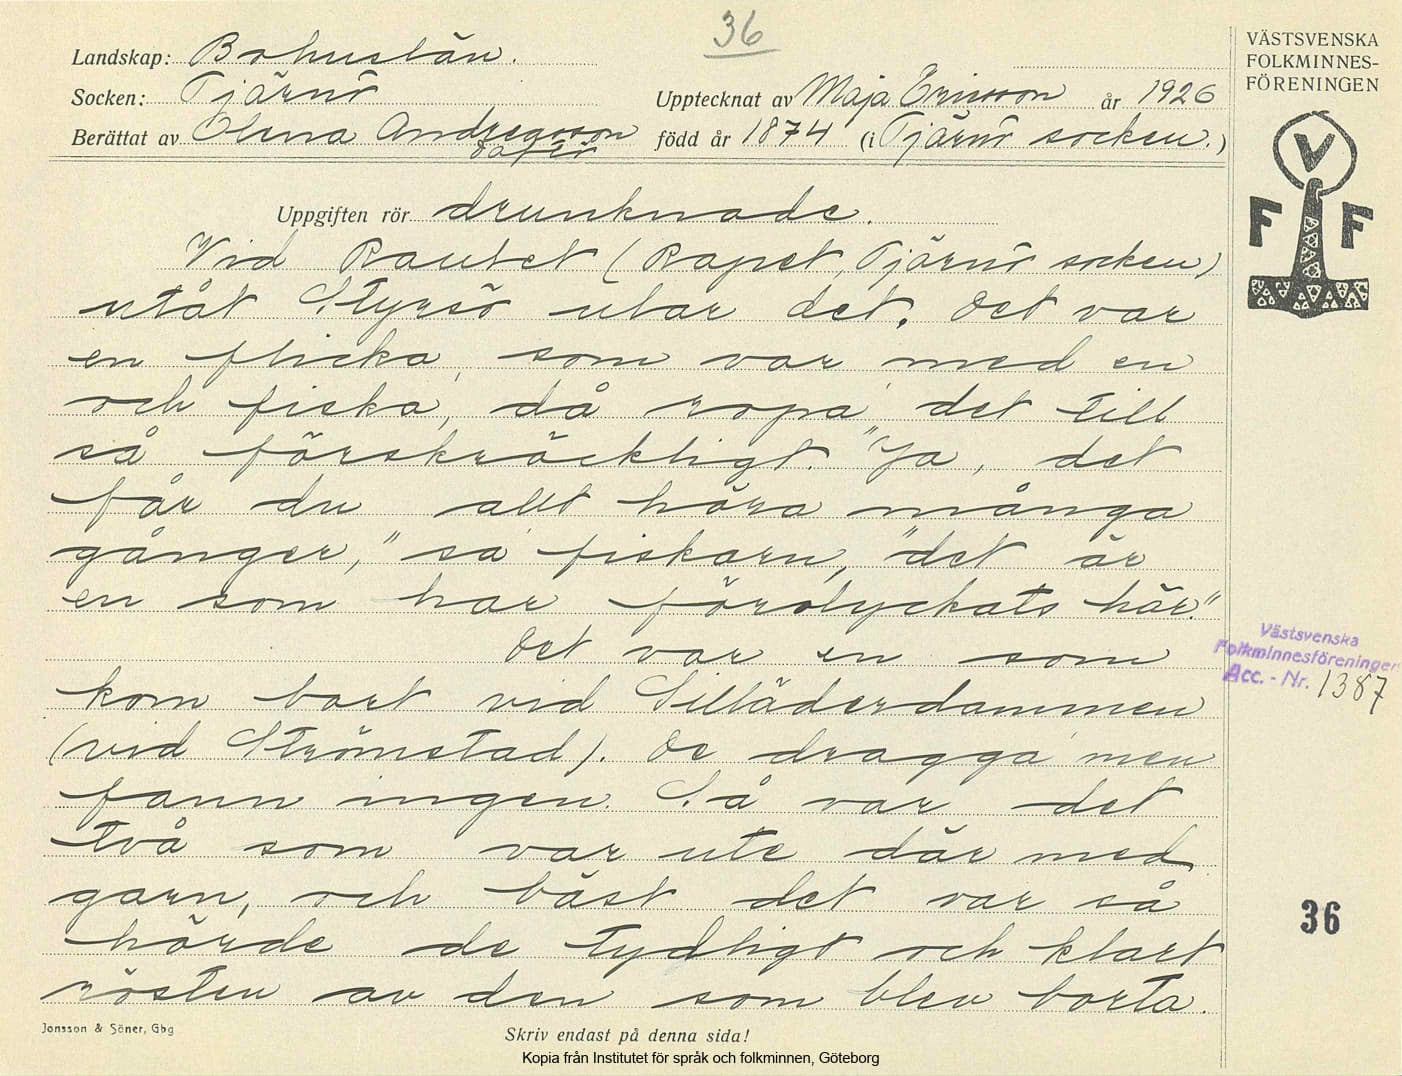 36
Landskap: Bohuslän.
Socken: Tjärnö
Upptecknat av Maja Ericsson år 1926
Berättat av Olena Andreasson
född år 1874 (i Tjärnö socken.)
VÄSTSVENSKA
FOLKMINNES-
FÖRENINGEN
V
F F
Uppgiften rör drunknade.
Vid (Rapet, Tjärnö socken)
utåt Styrsö ubar det. Det var
en flicka, som var med en
och fiska, då ropa det till
så förskräckligt. "Ja, det
får du allt höra många
gånger," sa fiskarn, "det är
en som har förolyckats här."
Det var en som
kom bort vid Silläderdammen
(vid Strömstad). De dragga men
fann ingen. Så var det
två som var ute där med
garn, och bäst det var så
hörde de tydligt och klart
rösten av den som blev borta.
Västsvenska
Folkminnesföreningen
Acc. - Nr. 1387
36
Jonsson & Söner, Gbg
Skriv endast på denna sida!
Kopia från Institutet för språk och folkminnen, Göteborg